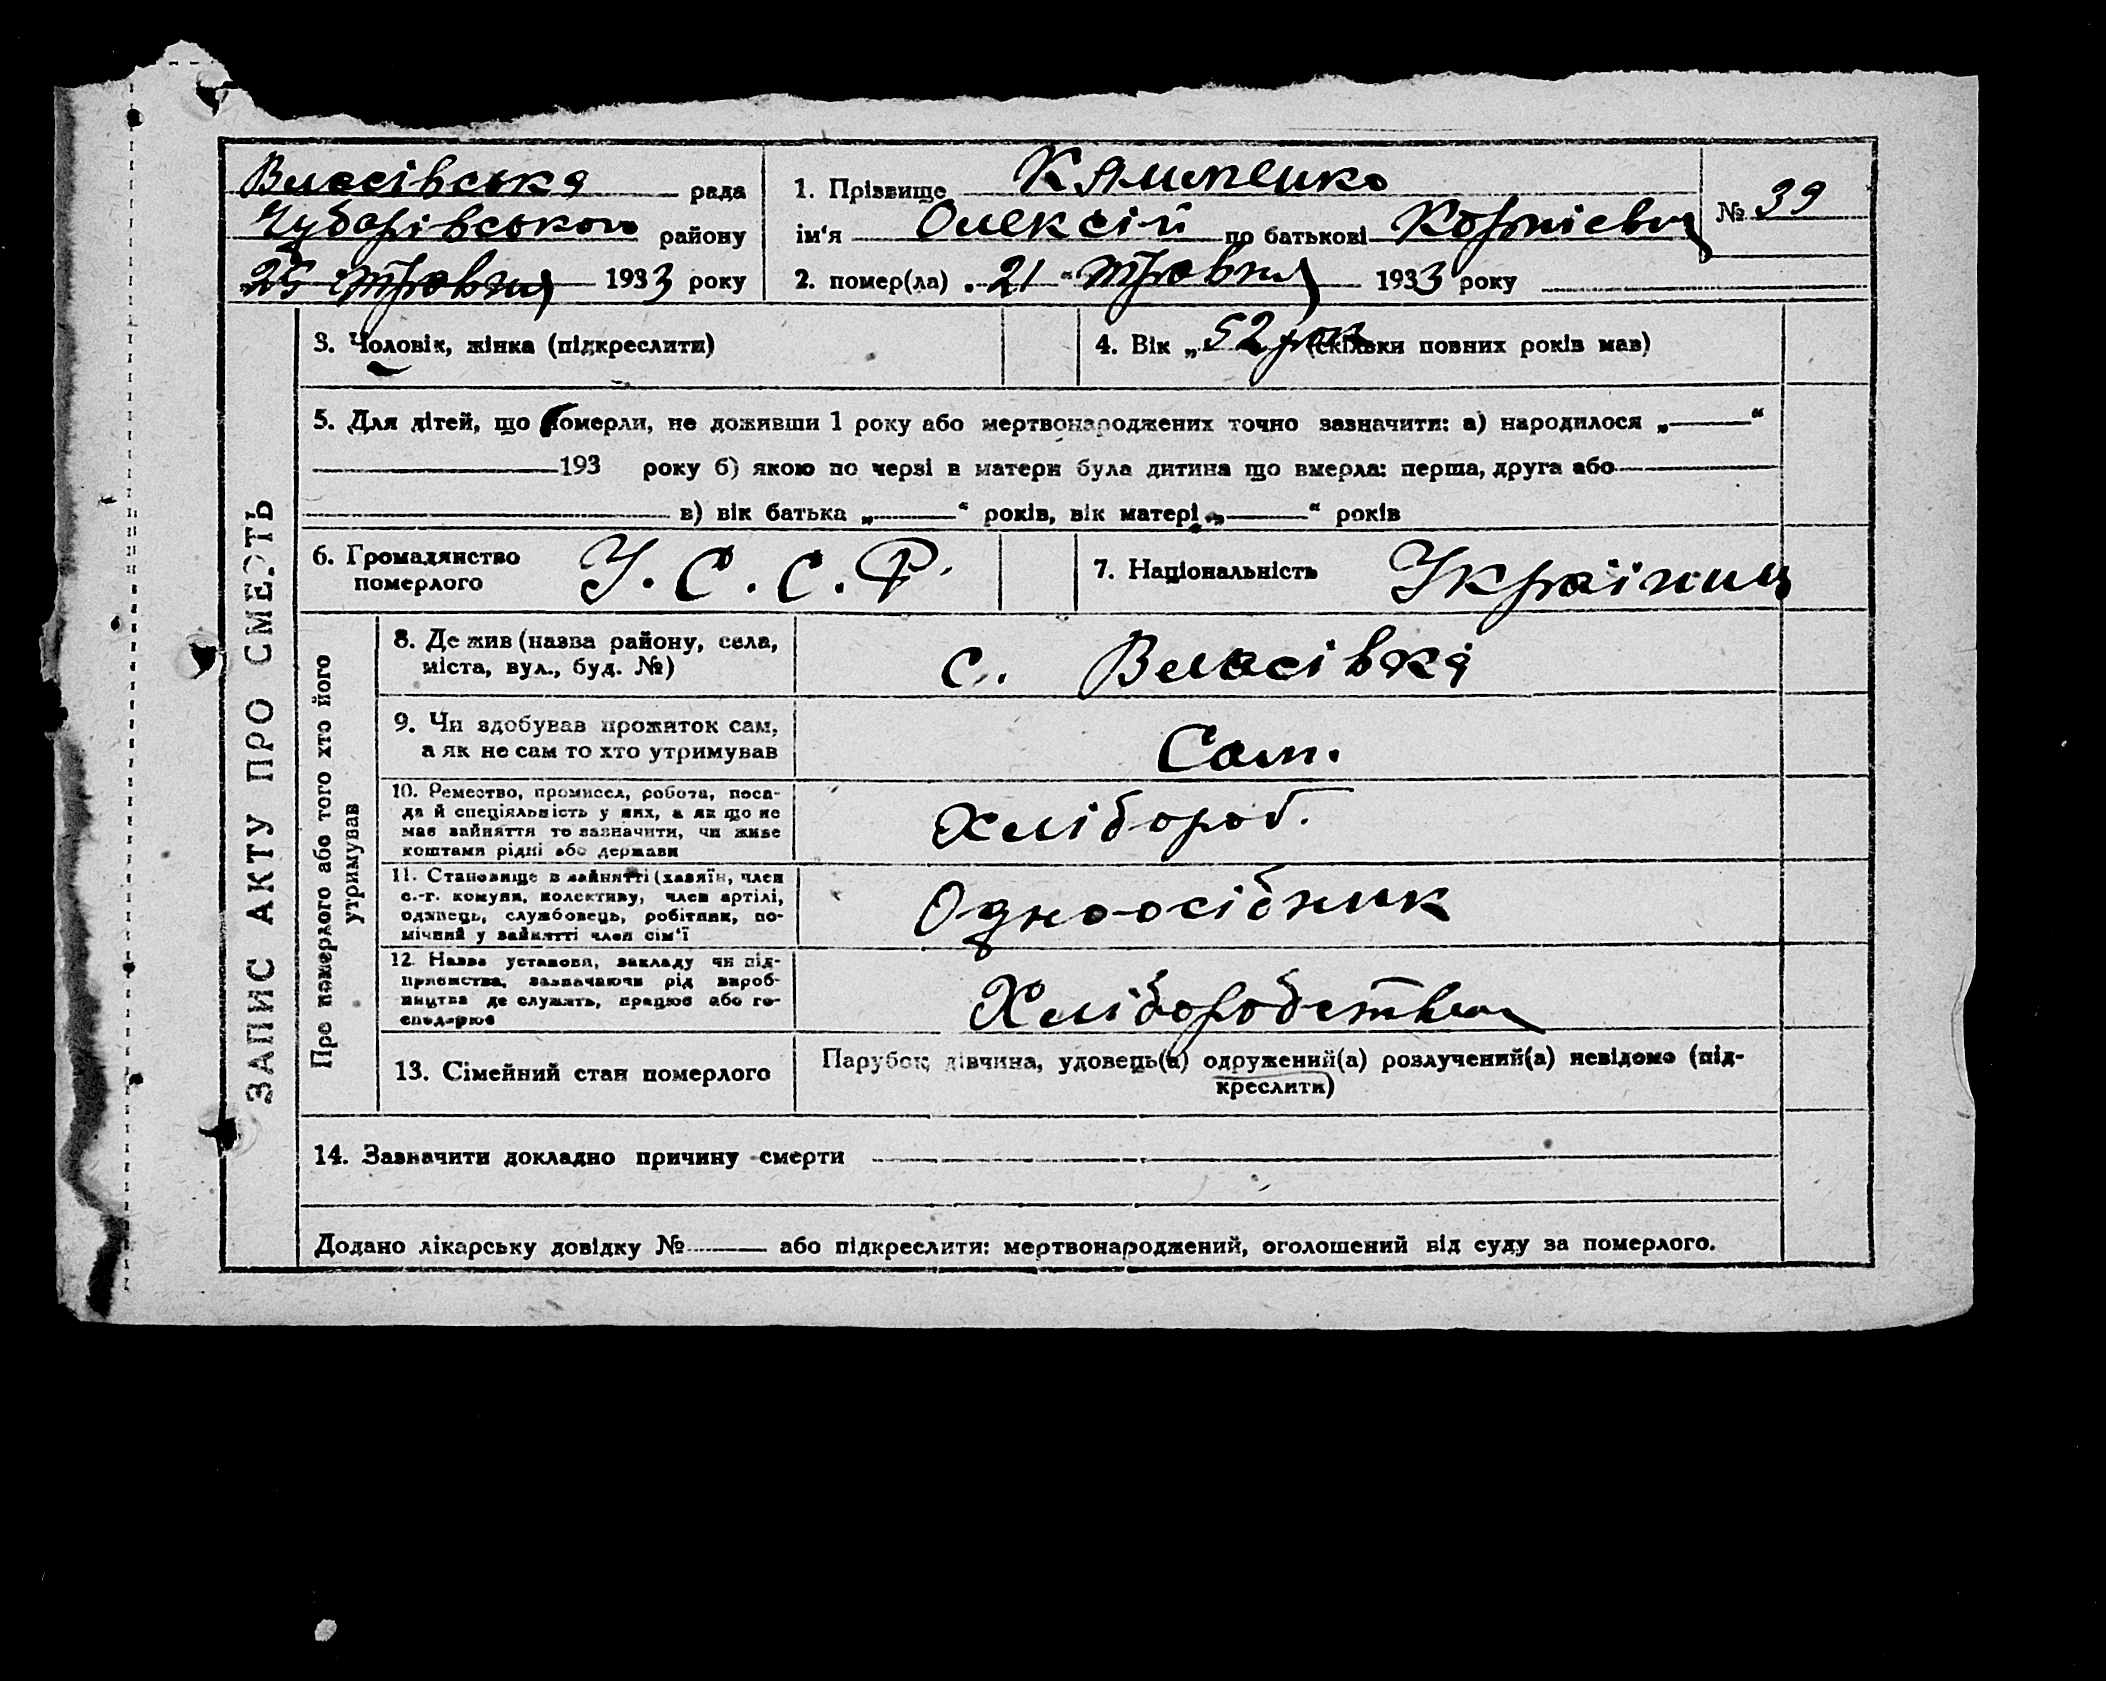 Власівська рада
Чубарівського району
25 травня 1933 року
1. Прізвище
ім'я Олексій по батькові Корнієвич
№ 39
2. помер(ла) „21“ травня 1933 року
ЗАПИС АКТУ ПРО СМЕРТЬ
3. Чоловік, жінка (підкреслити)
4. Вік „52 рок (скільки повних років мав)
5. Для дітей, що померли, не доживши 1 року або мертвонароджених точно зазначити: а) народилося „——“
193 року б) якою по черзі в матери була дитина що вмерла: перша, друга або
в) вік батька „——“ років, вік матері „——“ років
6. Громадянство
померлого
У.С.С.Р.
7. Національність Українец
Про померлого або того хто його
утримував
8. Де жив (назва району, села,
міста, вул., буд. №)
с. Власівка
9. Чи здобував прожиток сам,
а як не сам то хто утримував
Сам.
10. Ремество, промисел, робота, поса-
да й спеціяльність у них, а як що не
має зайняття то зазначити, чи живе
коштами рідні або держави
Хлібороб.
11. Становище в зайнятті (хазяїн, член
с.-г. комуни, колективу, член артілі,
одинець, службовець, робітник, по-
мічний у зайнятті член сім'ї
Одноосібник
12. Назва установи, закладу чи під-
приємства, зазначаючи рід вироб-
ництва де служить, працює або го-
сподарює
Хліборобство
13. Сімейний стан померлого
Парубок, дівчина, удовець(а) одружений(а) розлучений(а) невідомо (під-
креслити)
14. Зазначити докладно причину смерти
Додано лікарську довідку №—— або підкреслити: мертвонароджений, оголошений від суду за померлого.